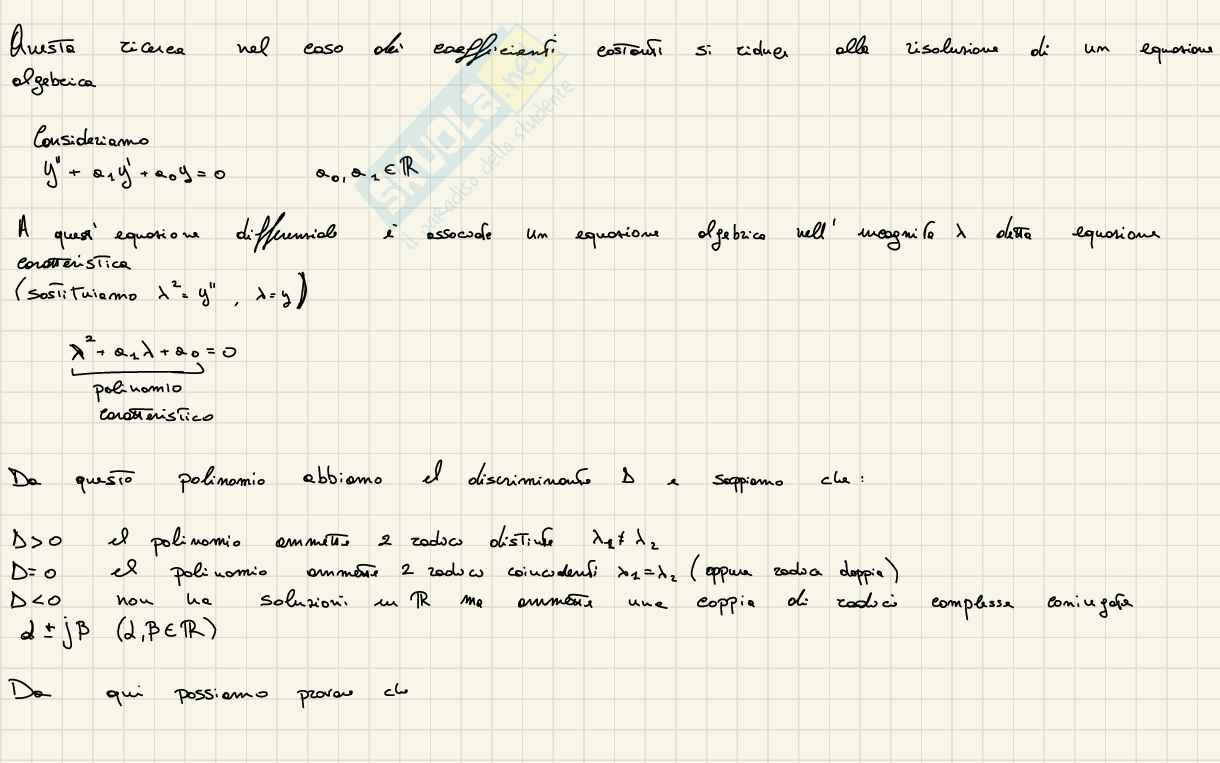 Questa ricerca nel caso dei coefficienti costanti si riduce alla risoluzione di un equazione
algebrica
SKUOLA.net
il paradiso dello studente
Consideriamo
y'' + a₁y' + a₀y = 0 a₀, a₁ ∈ ℝ
A quest'equazione differenziale è associata un equazione algebrica nell'incognita λ detta equazione
caratteristica
(sostituiamo λ² = y'', λ = y)
λ² + a₁λ + a₀ = 0
polinomio
caratteristico
Da questo polinomio abbiamo il discriminante Δ e sappiamo che:
Δ>0 il polinomio ammette 2 radici distinte λ₁ ≠ λ₂
Δ=0 il polinomio ammette 2 radici coincidenti λ₁=λ₂ (oppure radice doppia)
Δ<0 non ha soluzioni in ℝ ma ammette una coppia di radici complesse coniugate
α ± jβ (α,β ∈ ℝ)
Da qui possiamo provare che